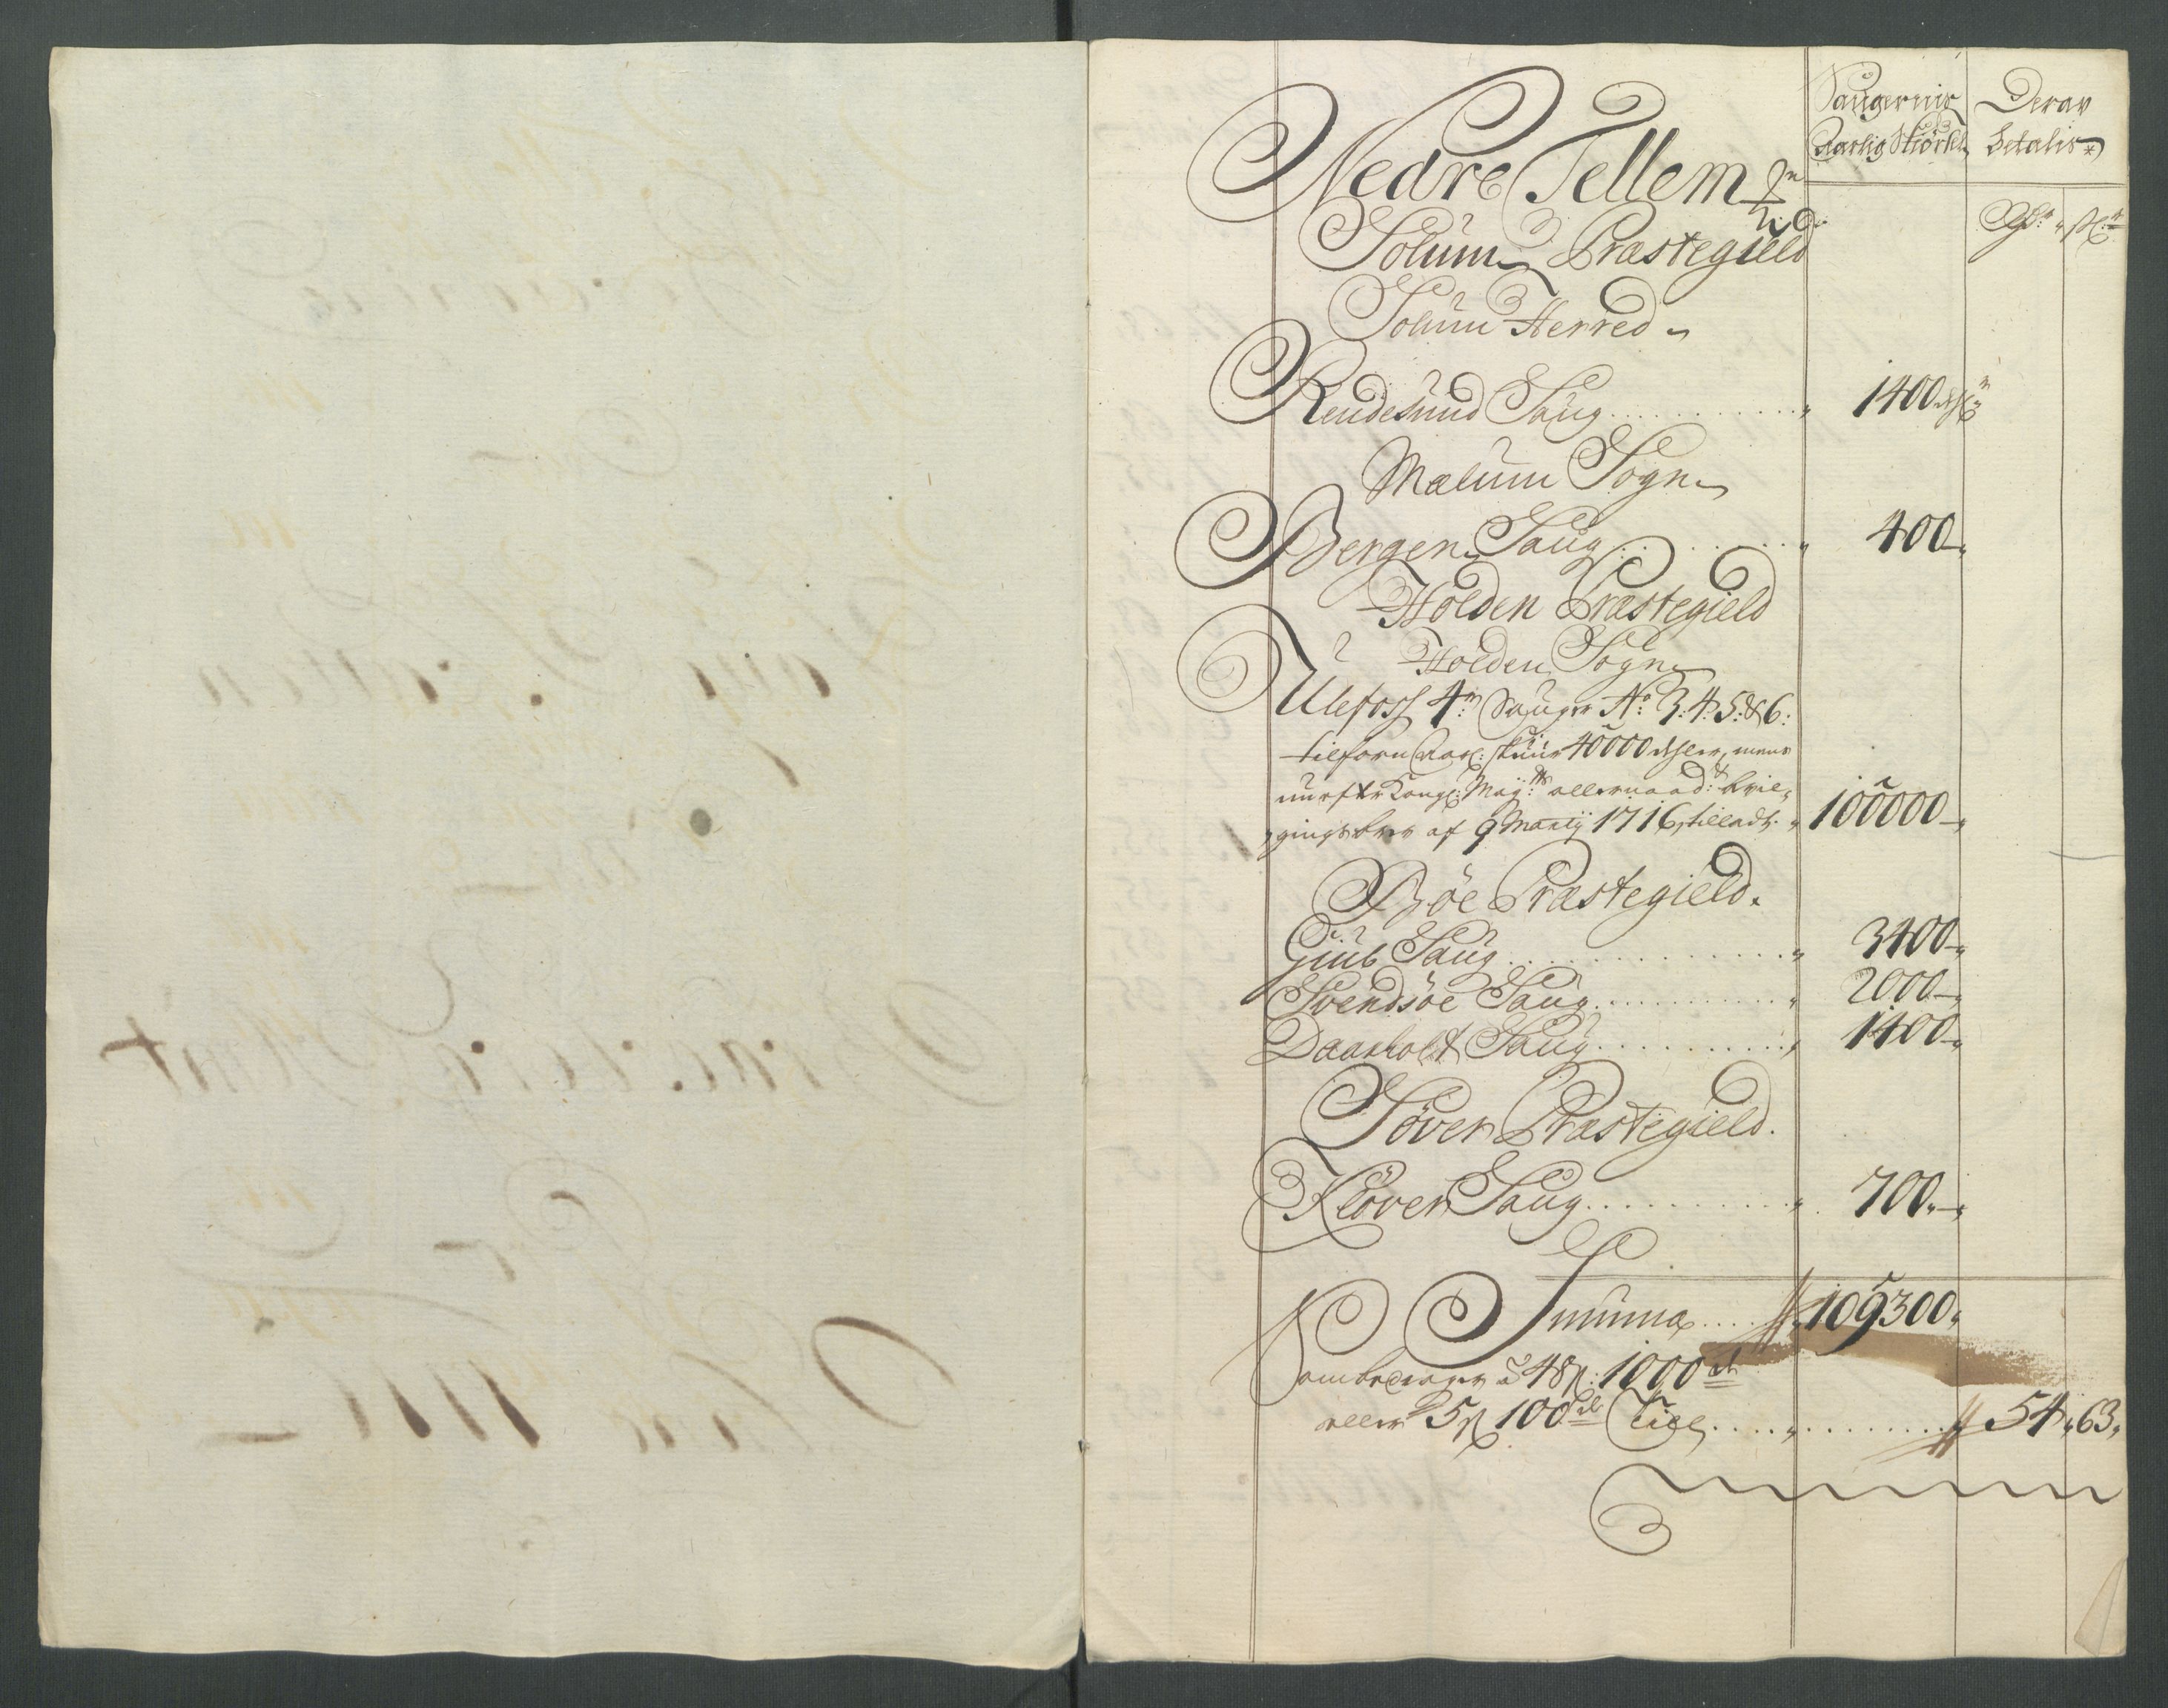 Saugernis Derav
Aarlig Skiørsel betalis
Nedre Tellem:
Solum Præstegield
Solum Herred
Rendesund Saug 1400
Mælum Sogn
Bergen Saug 400
Holden Præstegield
Holden Sogn
Ulefoss 4re Sauger No: 3: 4: 5: & 6:
tilforn Aarl: skuur 40000 dehler, mens
nu efter Kongl: May:ts allernaad:te bevil-
gings brev af 9 Martij 1716, tilladt 100000
Bøe Præstegield.
Giub Saug 3400
Svendsøe Saug 2000
Daarholt Saug 1400
Søver Præstegield.
Kløver Saug 700
Summa 109300
som bedrager a 48 s: 1000de
eller 5 s 100de Till 54 63